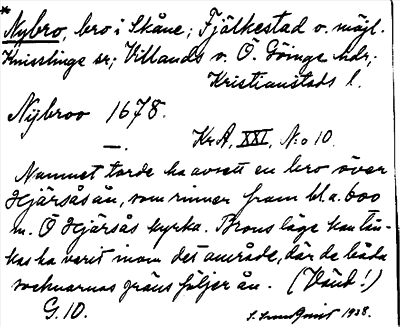 * Nybro, bro i Skåne; Fjälkestad o. möjl.
Knisslinge sr; Villands o. Ö. Göinge hdr;
Kristianstads l.
Nÿbroo 1678.
KrA, XXI, N:o 10.
—.
Namnet torde ha avsett en bro över
Hjärsåsån, som rinner fram bl.a. 600
m. Ö Hjärsås kyrka. Brons läge kan tän-
kas ha varit inom det område, där de båda
socknarnas gräns följer ån. (Vänd!)
G. 10. 1938.